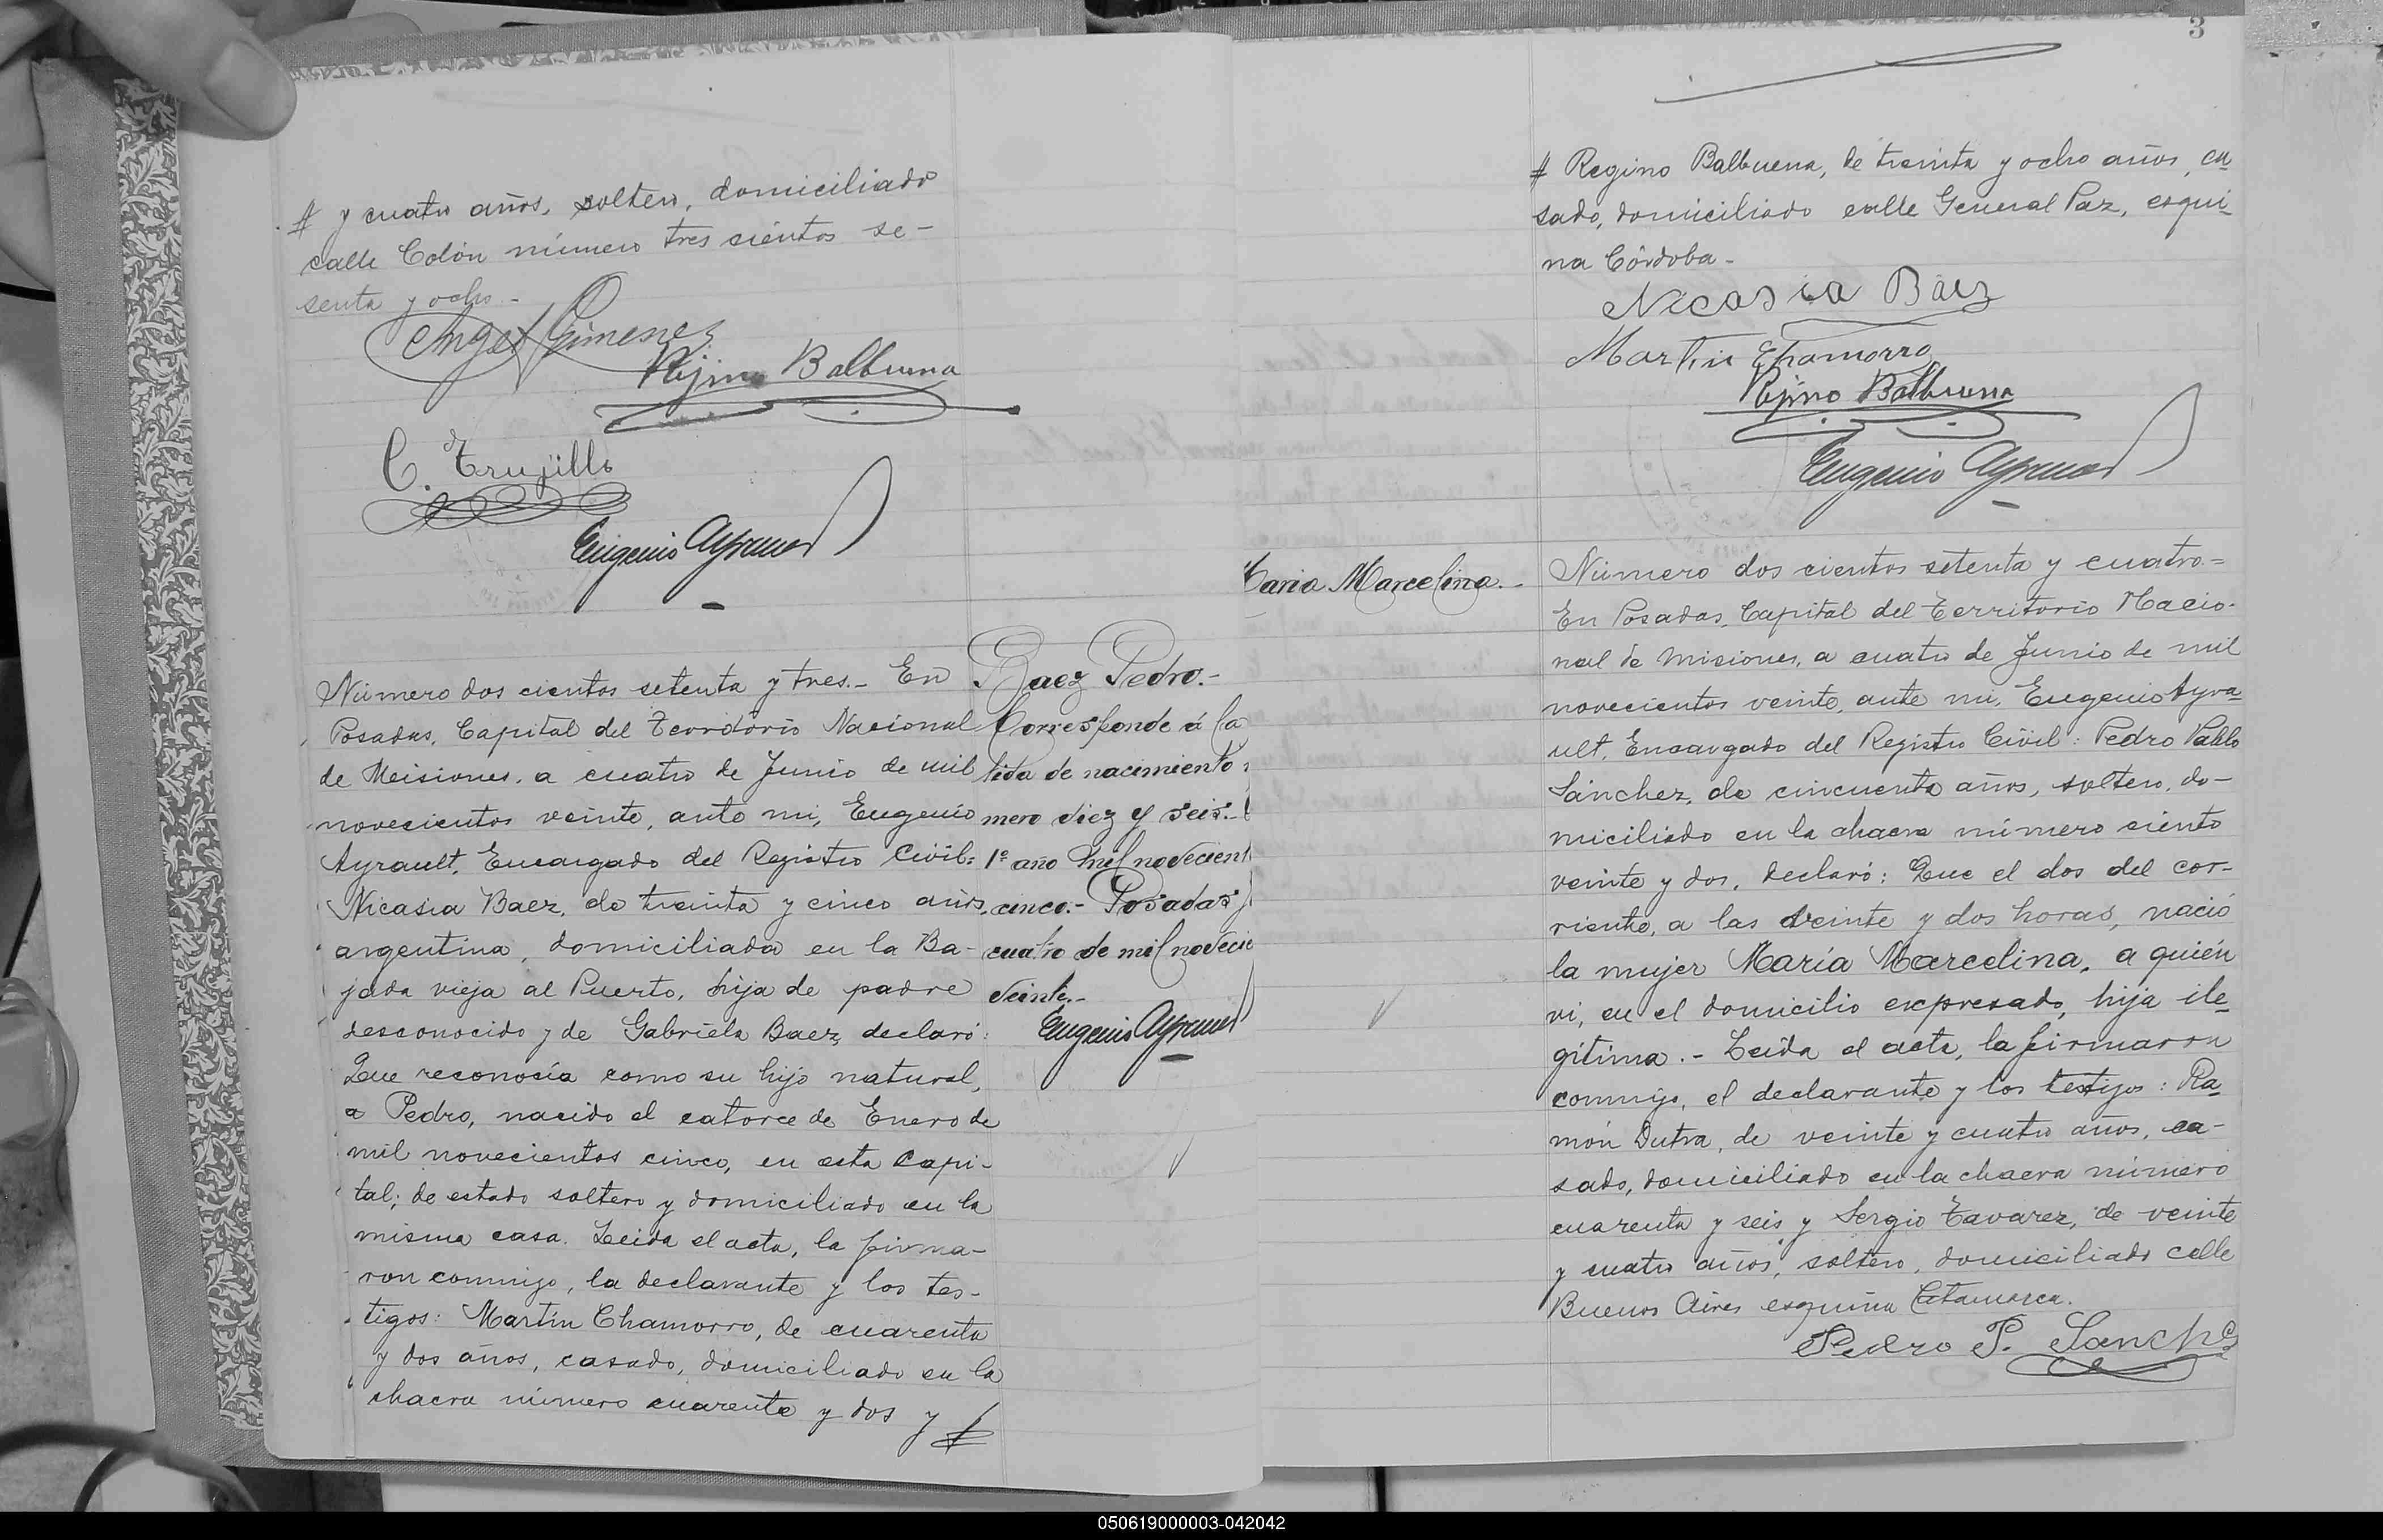 # y cuatro años, soltero, domiciliado
calle Colón número tres cientos se-
senta y ocho.-
Angel Gimenez
Rijino Balbuena
C. Trujillo
Eugenio Ayrault
Número dos cientos setenta y tres.- En
Posadas, Capital del Territorio Nacional
de Misiones, a cuatro de Junio de mil
novecientos veinte, ante mi, Eugenio
Ayrault, Encargado del Registro Civil:
Nicasia Baez, de treinta y cinco años,
argentina, domiciliada en la Ba-
jada vieja al Puerto, hija de padre
desconocido y de Gabriela Baez, declaró:
Que reconocía como su hijo natural,
a Pedro, nacido el catorce de Enero de
mil novecientos cinco, en esta Capi-
tal; de estado soltero y domiciliado en la
misma casa. Leida el acta, la firma-
ron conmigo, la declarante y los tes-
tigos: Martín Chamorro, de cuarenta
y dos años, casado, domiciliado en la
chacra número cuarenta y dos y #
Baez Pedro.-
Corresponde á la
tida de nacimiento
mero diez y seis.-
1º año mil novecient
cinco.- Posadas
cuatro de mil novecie
veinte.-
Eugenio Ayrault
3
# Regino Balbuena, de treinta y ocho años, ca-
sado, domiciliado calle General Paz, esqui-
na Córdoba.-
Nicasia Báez
Martin Chamorro
Rijino Balbuena
Eugenio Ayrault
María Marcelina.-
Número dos cientos setenta y cuatro.=
En Posadas, Capital del Territorio Nacio-
nal de Misiones, a cuatro de Junio de mil
novecientos veinte, ante mi, Eugenio Ayra-
ult, Encargado del Registro Civil: Pedro Pablo
Sánchez, de cincuenta años, soltero, do-
miciliado en la chacra número ciento
veinte y dos, declaró: Que el dos del cor-
riente, a las veinte y dos horas, nació
la mujer María Marcelina, a quién
vi, en el domicilio expresado, hija ile-
gítima.- Leída el acta, la firmaron
conmigo, el declarante y los testigos: Ra-
món Dutra, de veinte y cuatro años, ca-
sado, domiciliado en la chacra número
cuarenta y seis y Sergio Tavarez, de veinte
y cuatro años, soltero, domiciliado calle
Buenos Aires esquina Catamarca.
Pedro P. Sanchez
050619000003-042042